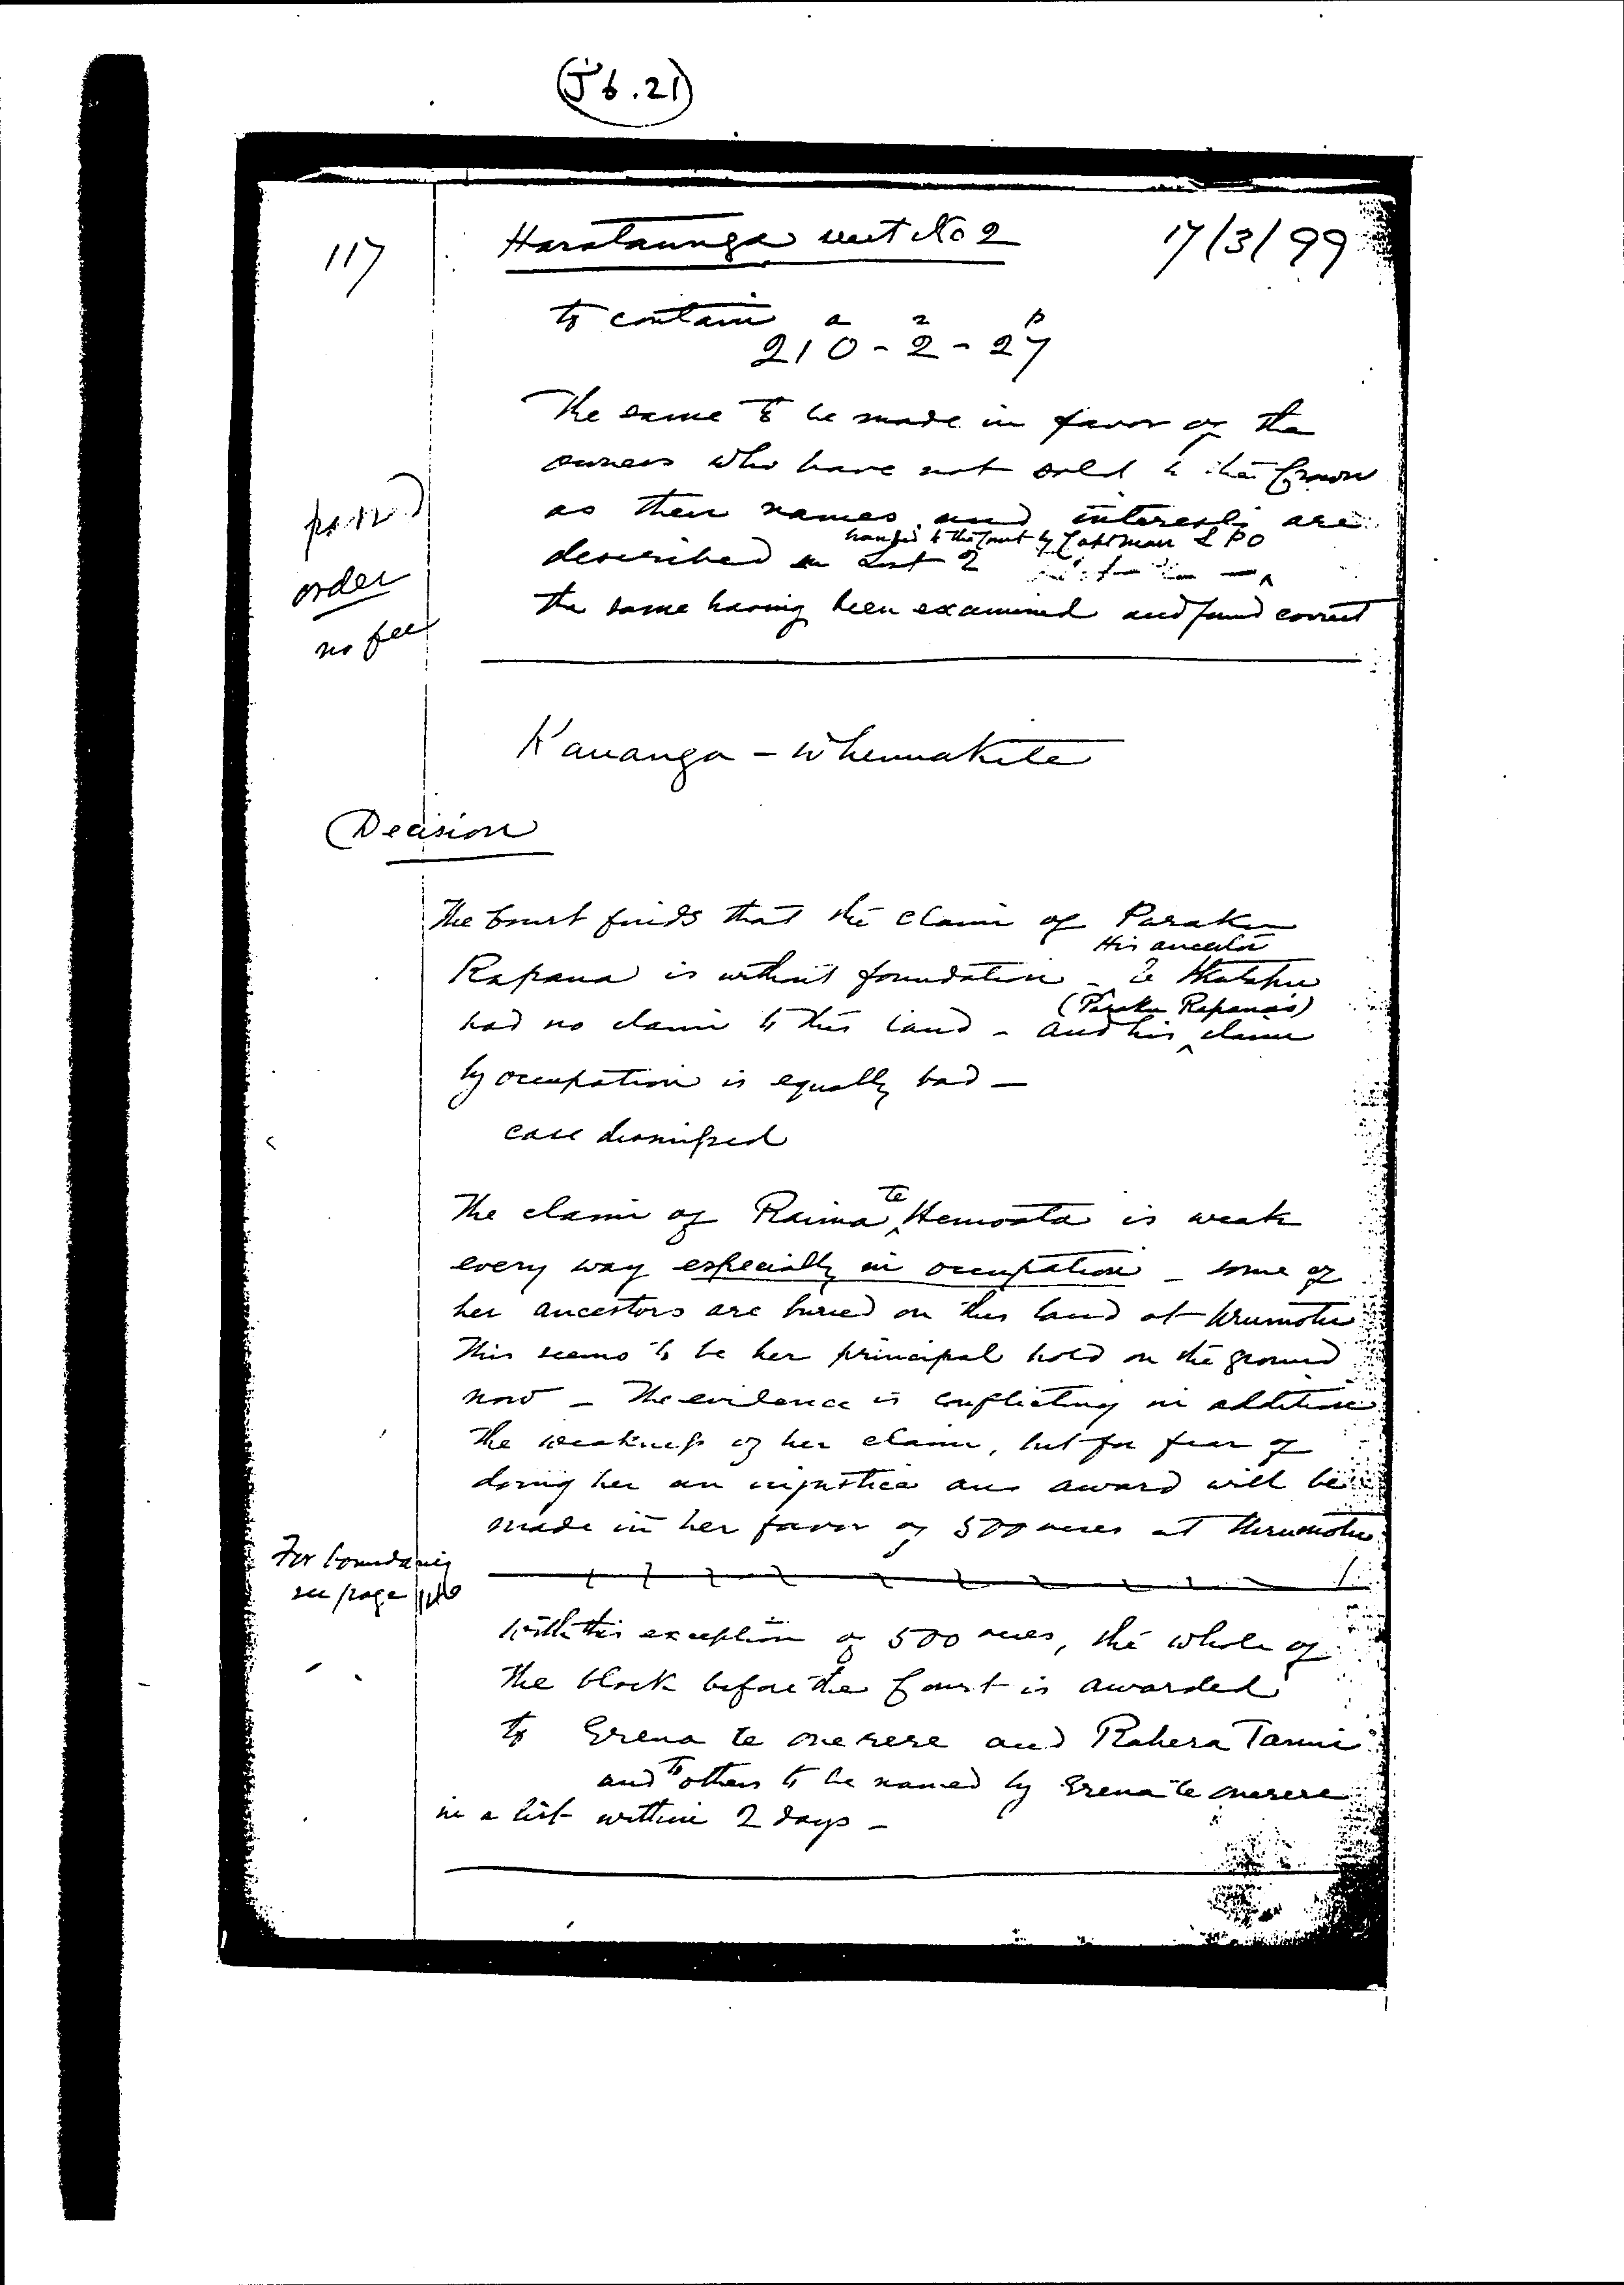 (J6.21)
117
Harataunga west No 2
17/3/99
to contain
a r p
210 - 2 - 27
The same to be made in favor of the
owners who have not sold to the Crown
as their names and interests are
handed to the Court by Capt Mair L P O
described in List 2
the same having been examined and found correct
order
no fee
Kauanga - Whenuakite
Decision
The Court finds that the claim of Paraku
His ancestor
Rapana is without foundation - Te
(Paraku Rapana's)
had no claim to this land - and his claim
by occupation is equally bad -
case dismissed
The claim of Raima te Hemoata is weak
every way especially in occupation - some of
her ancestors are buried on this land at
This seems to be her principal hold on the ground
now - The evidence is conflicting in addition
the weakness of her claim, but for fear of
doing her an injustice an award will be
made in her favor of 500 acres at
For boundaries
see page
With this exception of 500 acres, the whole of
the block before the Court is awarded
to Erena te Onerere and Rahera Tanui
and to others to be named by Erena te Onerere
in a list within 2 days -